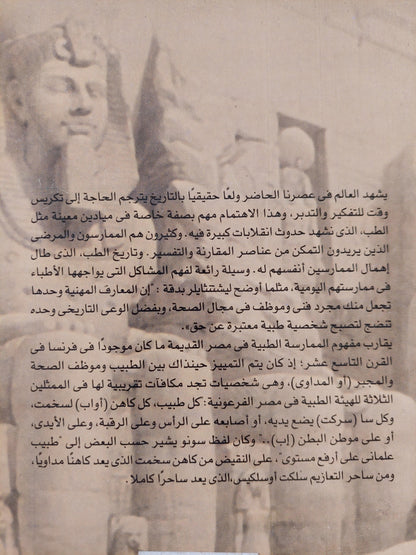 يشهد العالم فى عصرنا الحاضر ولعًا حقيقيًا بالتاريخ يترجم الحاجة إلى تكريس
وقت للتفكير والتدبر، وهذا الاهتمام مهم بصفة خاصة فى ميادين معينة مثل
الطب، الذى نشهد حدوث انقلابات كبيرة فيه. وكثيرون هم الممارسون والمرضى
الذين يريدون التمكن من عناصر المقارنة والتفسير. وتاريخ الطب، الذى طال
إهمال الممارسين أنفسهم له. وسيلة رائعة لفهم المشاكل التى يواجهها الأطباء
فى ممارستهم اليومية، مثلما أوضح ليشتنثايلر بدقة : "إن المعارف المهنية وحدها
تجعل منك مجرد فنى وموظف فى مجال الصحة، وبفضل الوعى التاريخى وحده
تنضج لتصبح شخصية طبية معتبرة عن حق».
يقارب مفهوم الممارسة الطبية فى مصر القديمة ما كان موجودًا فى فرنسا فى
القرن التاسع عشر؛ إذ كان يتم التمييز حينذاك بين الطبيب وموظف الصحة
والمجبر (أو المداوى)، وهى شخصيات تجد مكافآت تقريبية لها فى الممثلين
الثلاثة للهيئة الطبية فى مصر الفرعونية: كل طبيب، كل كاهن (أواب) لسخمت،
وكل سا (سركت) يضع يديه، أو أصابعه على الرأس وعلى الرقبة، وعلى الأيدى،
أو على موطن البطن (إب).." وكان لفظ سونو يشير حسب البعض إلى "طبيب
علمانى على أرفع مستوى"، على النقيض من كاهن سخمت الذى يعد كاهنًا مداويًا،
ومن ساحر التعازيم سلكت أوسلكيس،الذى يعد ساحرًا كاملا .